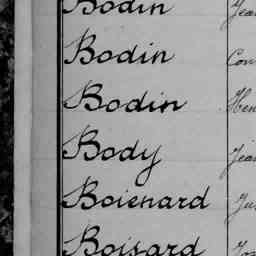 Bodin Jea
Bodin Con
Bodin Hen
Body Jean
Boienard Ju
Boisard Jos